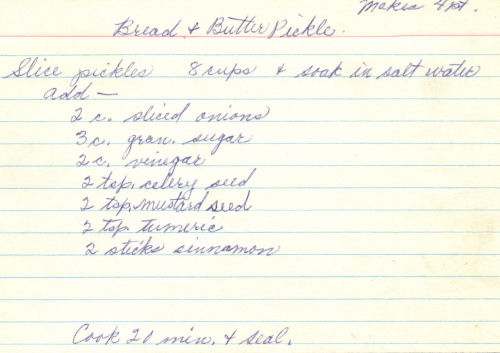 Makes 4 pt.
Bread & Butter Pickle.
Slice pickles 8 cups & soak in salt water
add —
2 c. sliced onions
3 c. gran. sugar
2 c. vinegar
2 tsp. celery seed
2 tsp. mustard seed
2 tsp tumeric
2 sticks cinnamon
Cook 20 min. & seal.